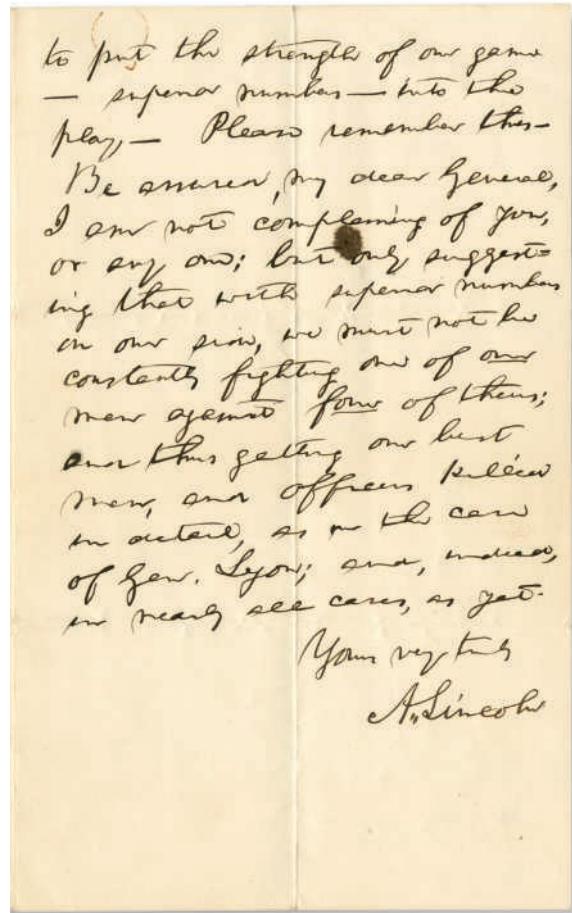 to put the strength of our game
— superior numbers — into the
play — Please remember this —
Be assured, my dear General,
I am not complaining of you,
or any one; but only suggest=
ing that with superior numbers
on our side, we must not be
constantly fighting one of our
men against four of theirs;
and thus getting our best
men, and officers killed
in detail, as in the case
of Gen. Lyon; and, indeed,
in nearly all cases, as yet.
Yours very truly
A. Lincoln